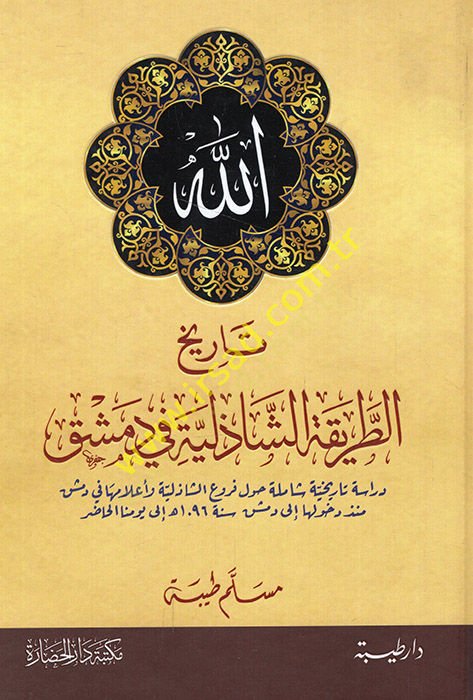 الله
تاريخ
الطريقة الشاذلية في دمشق
دراسة تاريخية شاملة حول فروع الشاذلية وأعلامها في دمشق
منذ دخولها إلى دمشق سنة ١٠٩٦هـ إلى يومنا الحاضر
مسلم طيبة
دار طيبة
مكتبة دار الحضارة
www.irsad.com.tr